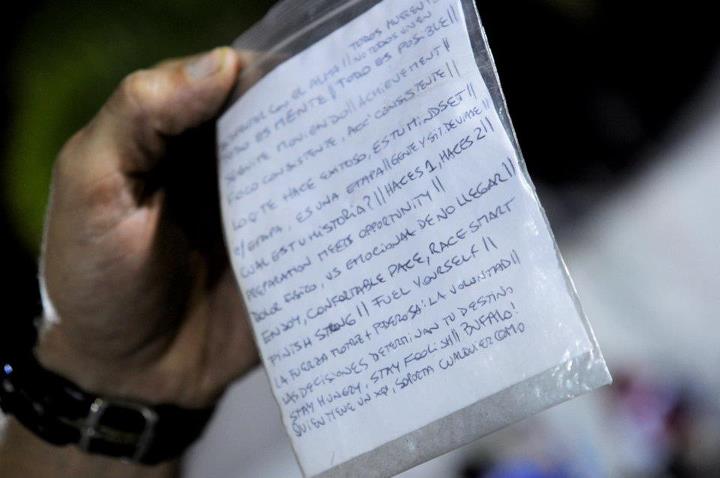 TODOS
CON EL ALMA || NO TODOS
TODO ES MENTE || TODO ES POSIBLE ||
SEGUITE MOVIENDO || ACHIEVEMENT ||
FOCO CONSISTENTE, ACÉ CONSISTENTE ||
LO Q TE HACE EXITOSO, ES TU MINDSET ||
C/ ETAPA, ES UNA ETAPA || GENTE Y SIT.
CUAL ES TU HISTORIA? || HACES 1, HACES 2 ||
PREPARATION MEETS OPPORTUNITY ||
DOLOR FISICO, VS EMOCIONAL DE NO LLEGAR ||
ENJOY, CONFORTABLE PACE, RACE SMART
FINISH STRONG || FUEL YOURSELF ||
LA FUERZA MOTRIZ + PODEROSA: LA VOLUNTAD ||
LAS DECISIONES DETERMINAN TU DESTINO
STAY HUNGRY, STAY FOOLISH || BUFALO!
QUIEN TIENE UN XQ, SOPORTA CUALQUIER COMO